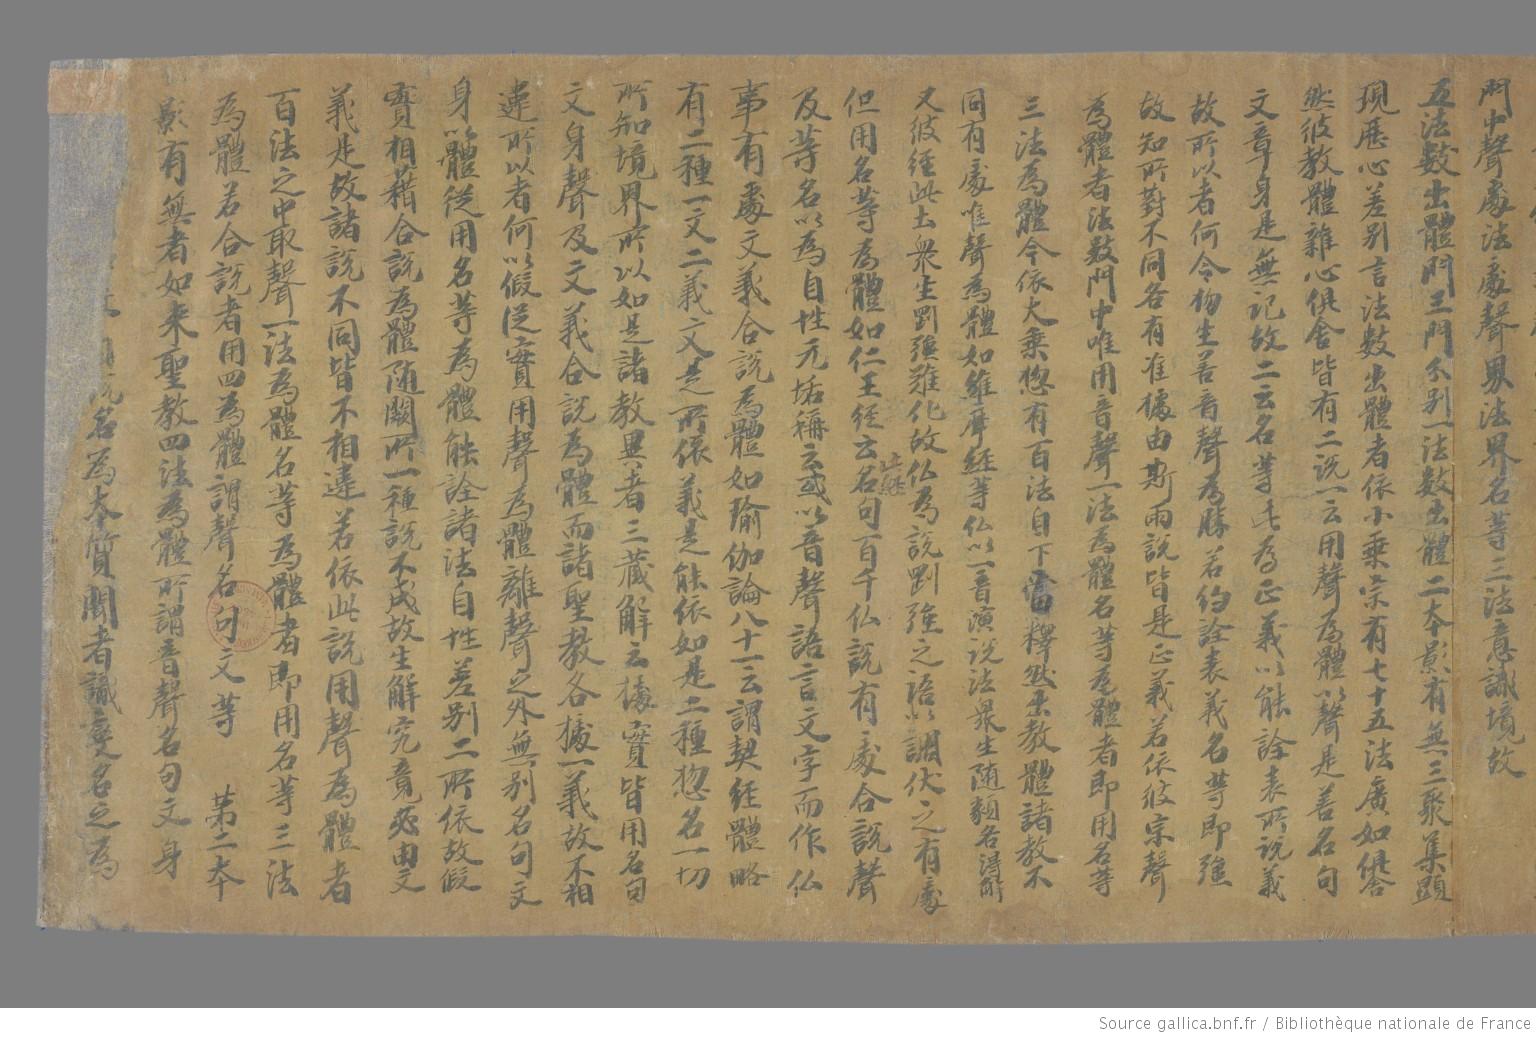 門中聲處法處聲界法界名等三法意識境故
五法數出體門三門分別一法數出體二本影有無三聚集顯
現歷心差別言法數出體者依小乘宗有七十五法廣如俱舍
然彼教體雜心俱舍皆有二說一云用聲為體以聲是善名句
文章身是無記故二云名等此為正義以能詮表所說義
故所以者何令物生善音聲為勝若約詮表義名等即強
故知所對不同各有准據由斯兩說皆是正義若依彼宗聲
為體者法數門中唯用音聲一法為體名等為體者即用名等
三法為體今依大乘惣有百法自下當釋然出教體諸教不
同有處唯聲為體如維摩經等仏以一音演說法眾生随類各得解
又彼經此土眾生剛強難化故仏為說剛強之語以調伏之有處
但用名等為體如仁王經云名句百千仏說有處合說聲
此經
及等名以為自性无垢稱云或以音聲語言文字而作仏
事有處文義合說為體如瑜伽論八十一云謂契經體略
有二種一文二義文是所依義是能依如是二種惣名一切
所知境界所以如是諸教異者三藏解云據實皆用名句
文身聲及文義合說為體而諸聖教各據一義故不相
違所以者何以假從實用聲為體離聲之外無別名句文
身以體從用名等為體能詮諸法自性差別二所依故假
實相藉合說為體随闕所一種說不成故生解究竟必由文
義是故諸說不同皆不相違若依此說用聲為體者
百法之中取聲一法為體名等為體者即用名等三法
為體若合說者用四為體謂聲名句文等 第二本
影有無者如来聖教四法為體所謂音聲名句文身
說名為本質聞者識變名之為
Source gallica.bnf.fr / Bibliothèque nationale de France